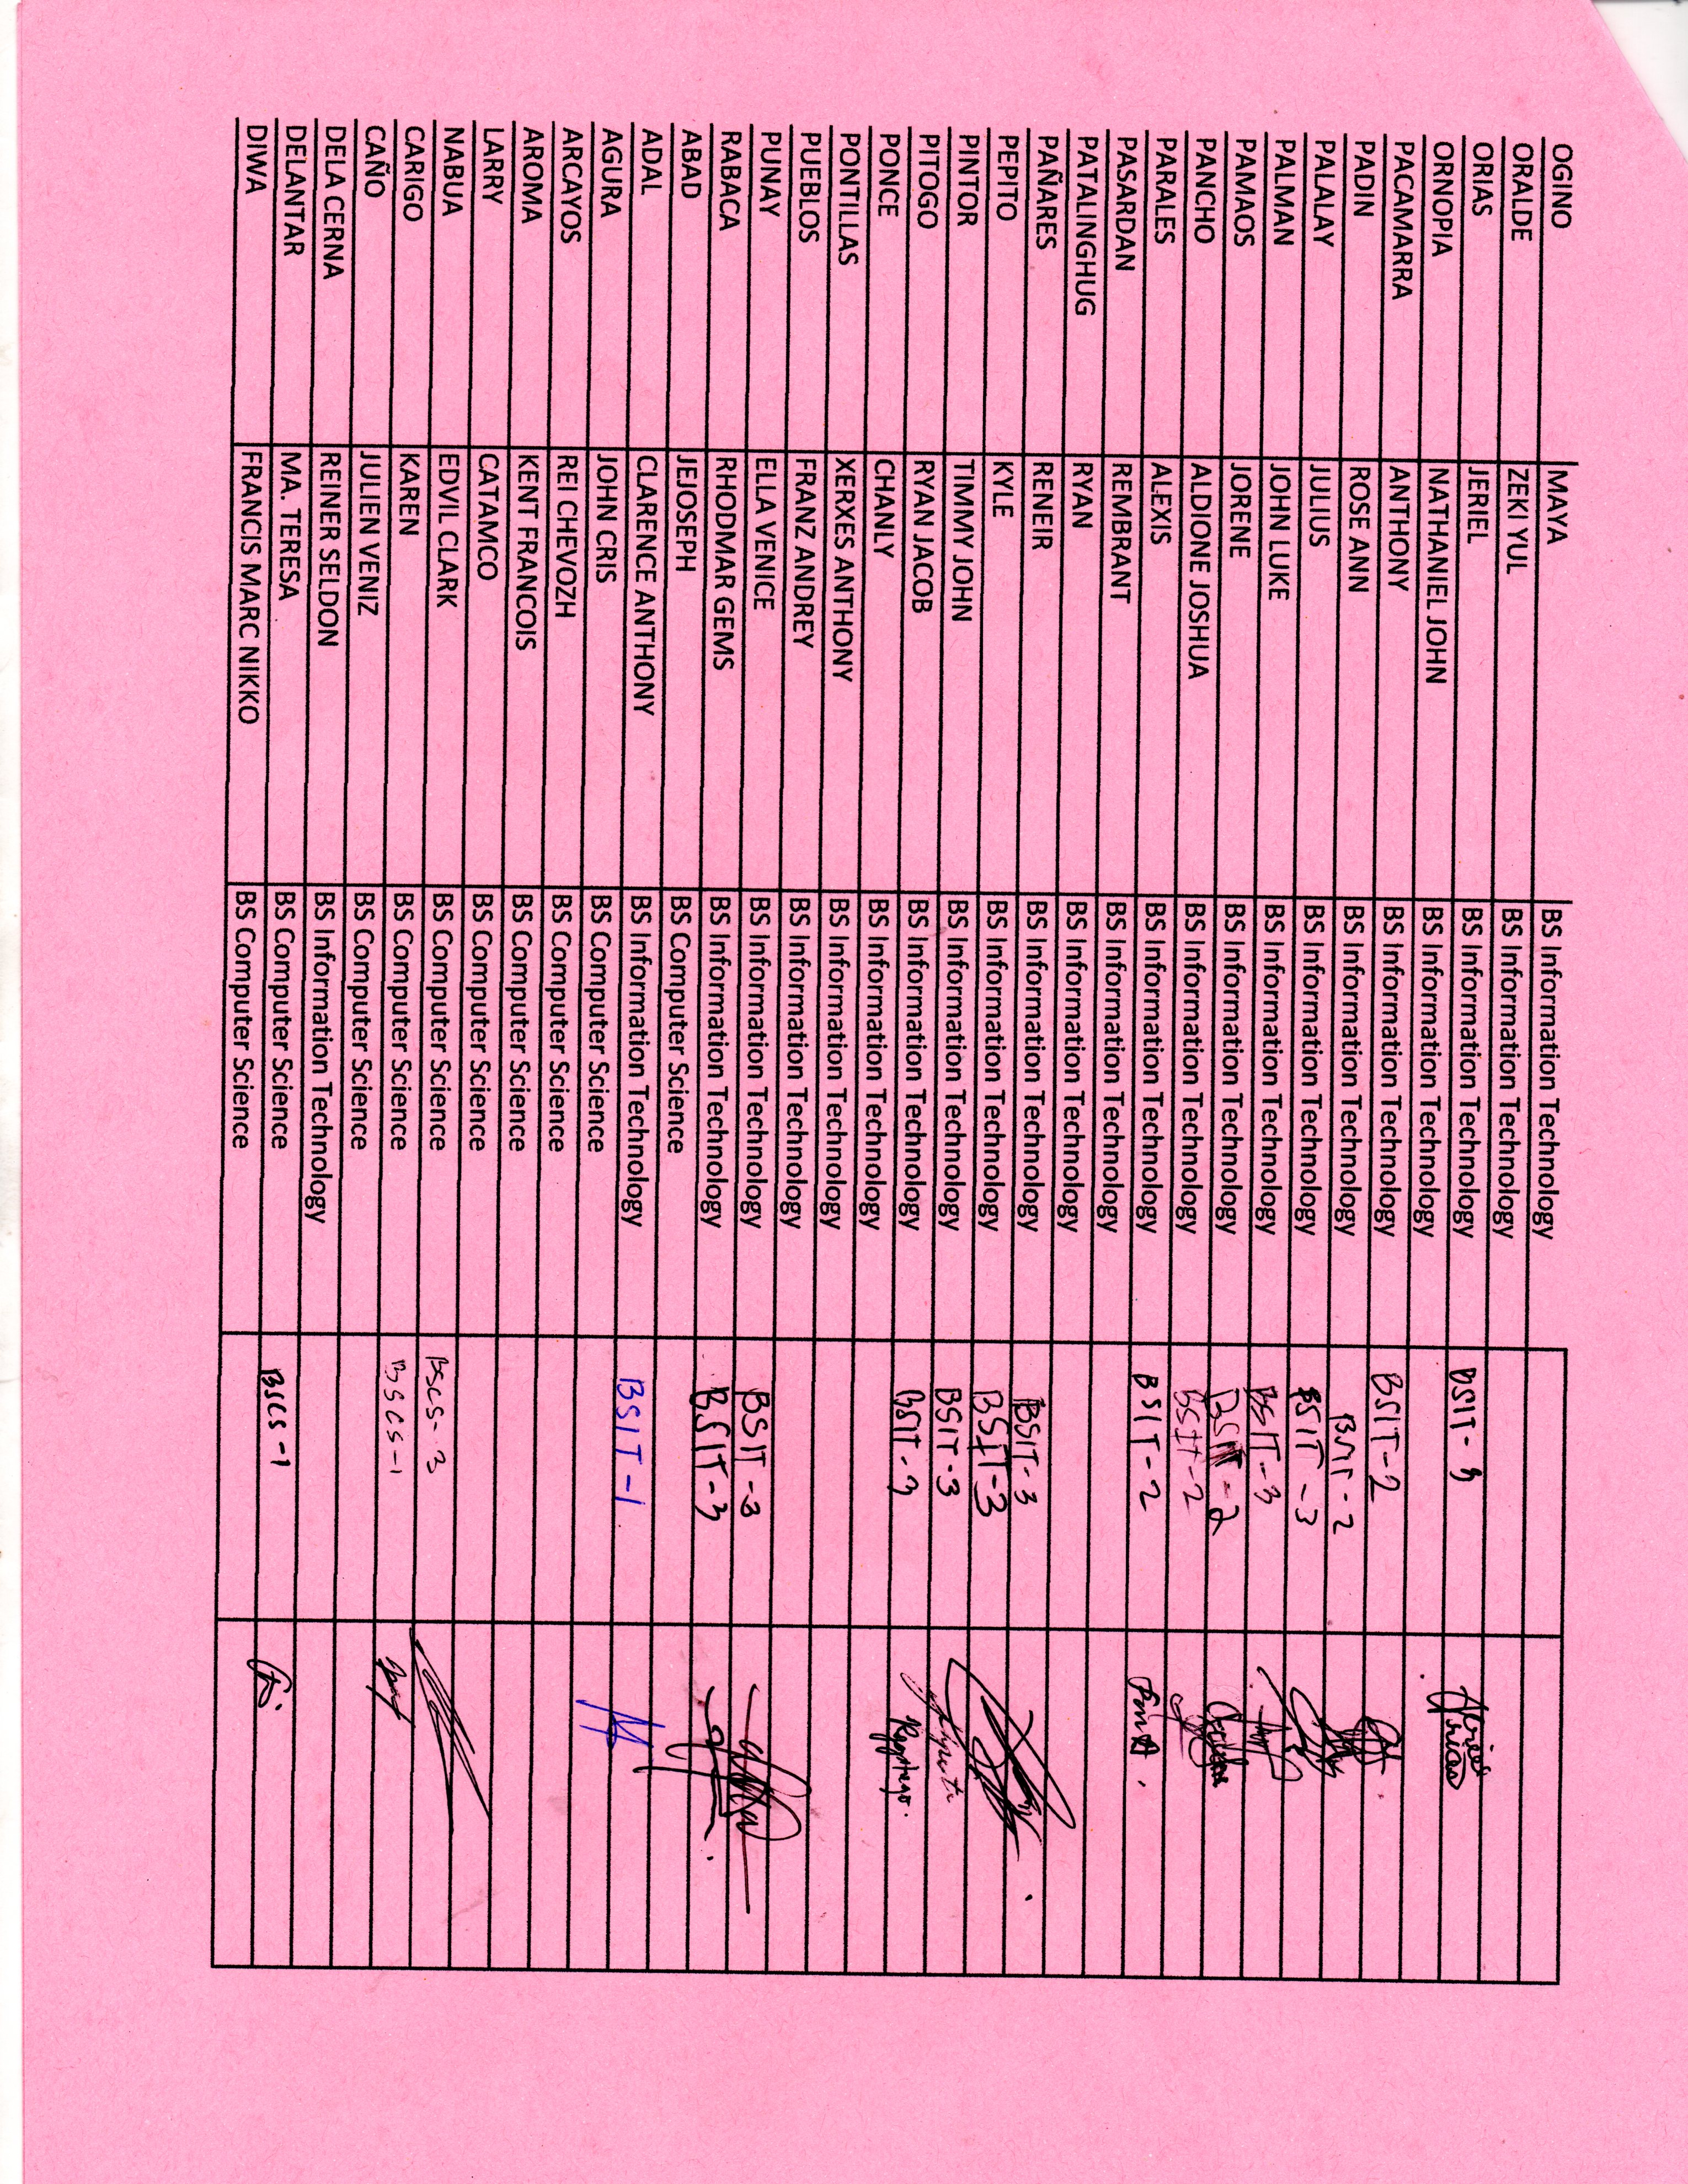 OGINO MAYA BS Information Technology
ORALDE ZEKI YUL BS Information Technology
ORIAS JERIEL BS Information Technology BSIT-3
ORNOPIA NATHANIEL JOHN BS Information Technology
PACAMARRA ANTHONY BS Information Technology BSIT-2
PADIN ROSE ANN BS Information Technology BSIT-2
PALALAY JULIUS BS Information Technology BSIT-3
PALMAN JOHN LUKE BS Information Technology BSIT-3
PAMAOS JORENE BS Information Technology BSIT-2
PANCHO ALDIONE JOSHUA BS Information Technology BSIT-2
PARALES ALEXIS BS Information Technology BSIT-2
PASARDAN REMBRANT BS Information Technology
PATALINGHUG RYAN BS Information Technology
PAÑARES RENEIR BS Information Technology BSIT-3
PEPITO KYLE BS Information Technology BSIT-3
PINTOR TIMMY JOHN BS Information Technology BSIT-3
PITOGO RYAN JACOB BS Information Technology BSIT-3
PONCE CHANLY BS Information Technology
PONTILLAS XERXES ANTHONY BS Information Technology
PUEBLOS FRANZ ANDREY BS Information Technology
PUNAY ELLA VENICE BS Information Technology BSIT-3
RABACA RHODMAR GEMS BS Information Technology BSIT-3
ABAD JEJOSEPH BS Computer Science
ADAL CLARENCE ANTHONY BS Information Technology BSIT-1
AGURA JOHN CRIS BS Computer Science
ARCAYOS REI CHEVOZH BS Computer Science
AROMA KENT FRANCOIS BS Computer Science
LARRY CATAMCO BS Computer Science
NABUA EDVIL CLARK BS Computer Science BSCS-3
CARIGO KAREN BS Computer Science BSCS-1
CAÑO JULIEN VENIZ BS Computer Science
DELA CERNA REINER SELDON BS Information Technology
DELANTAR MA. TERESA BS Computer Science BSCS-1
DIWA FRANCIS MARC NIKKO BS Computer Science